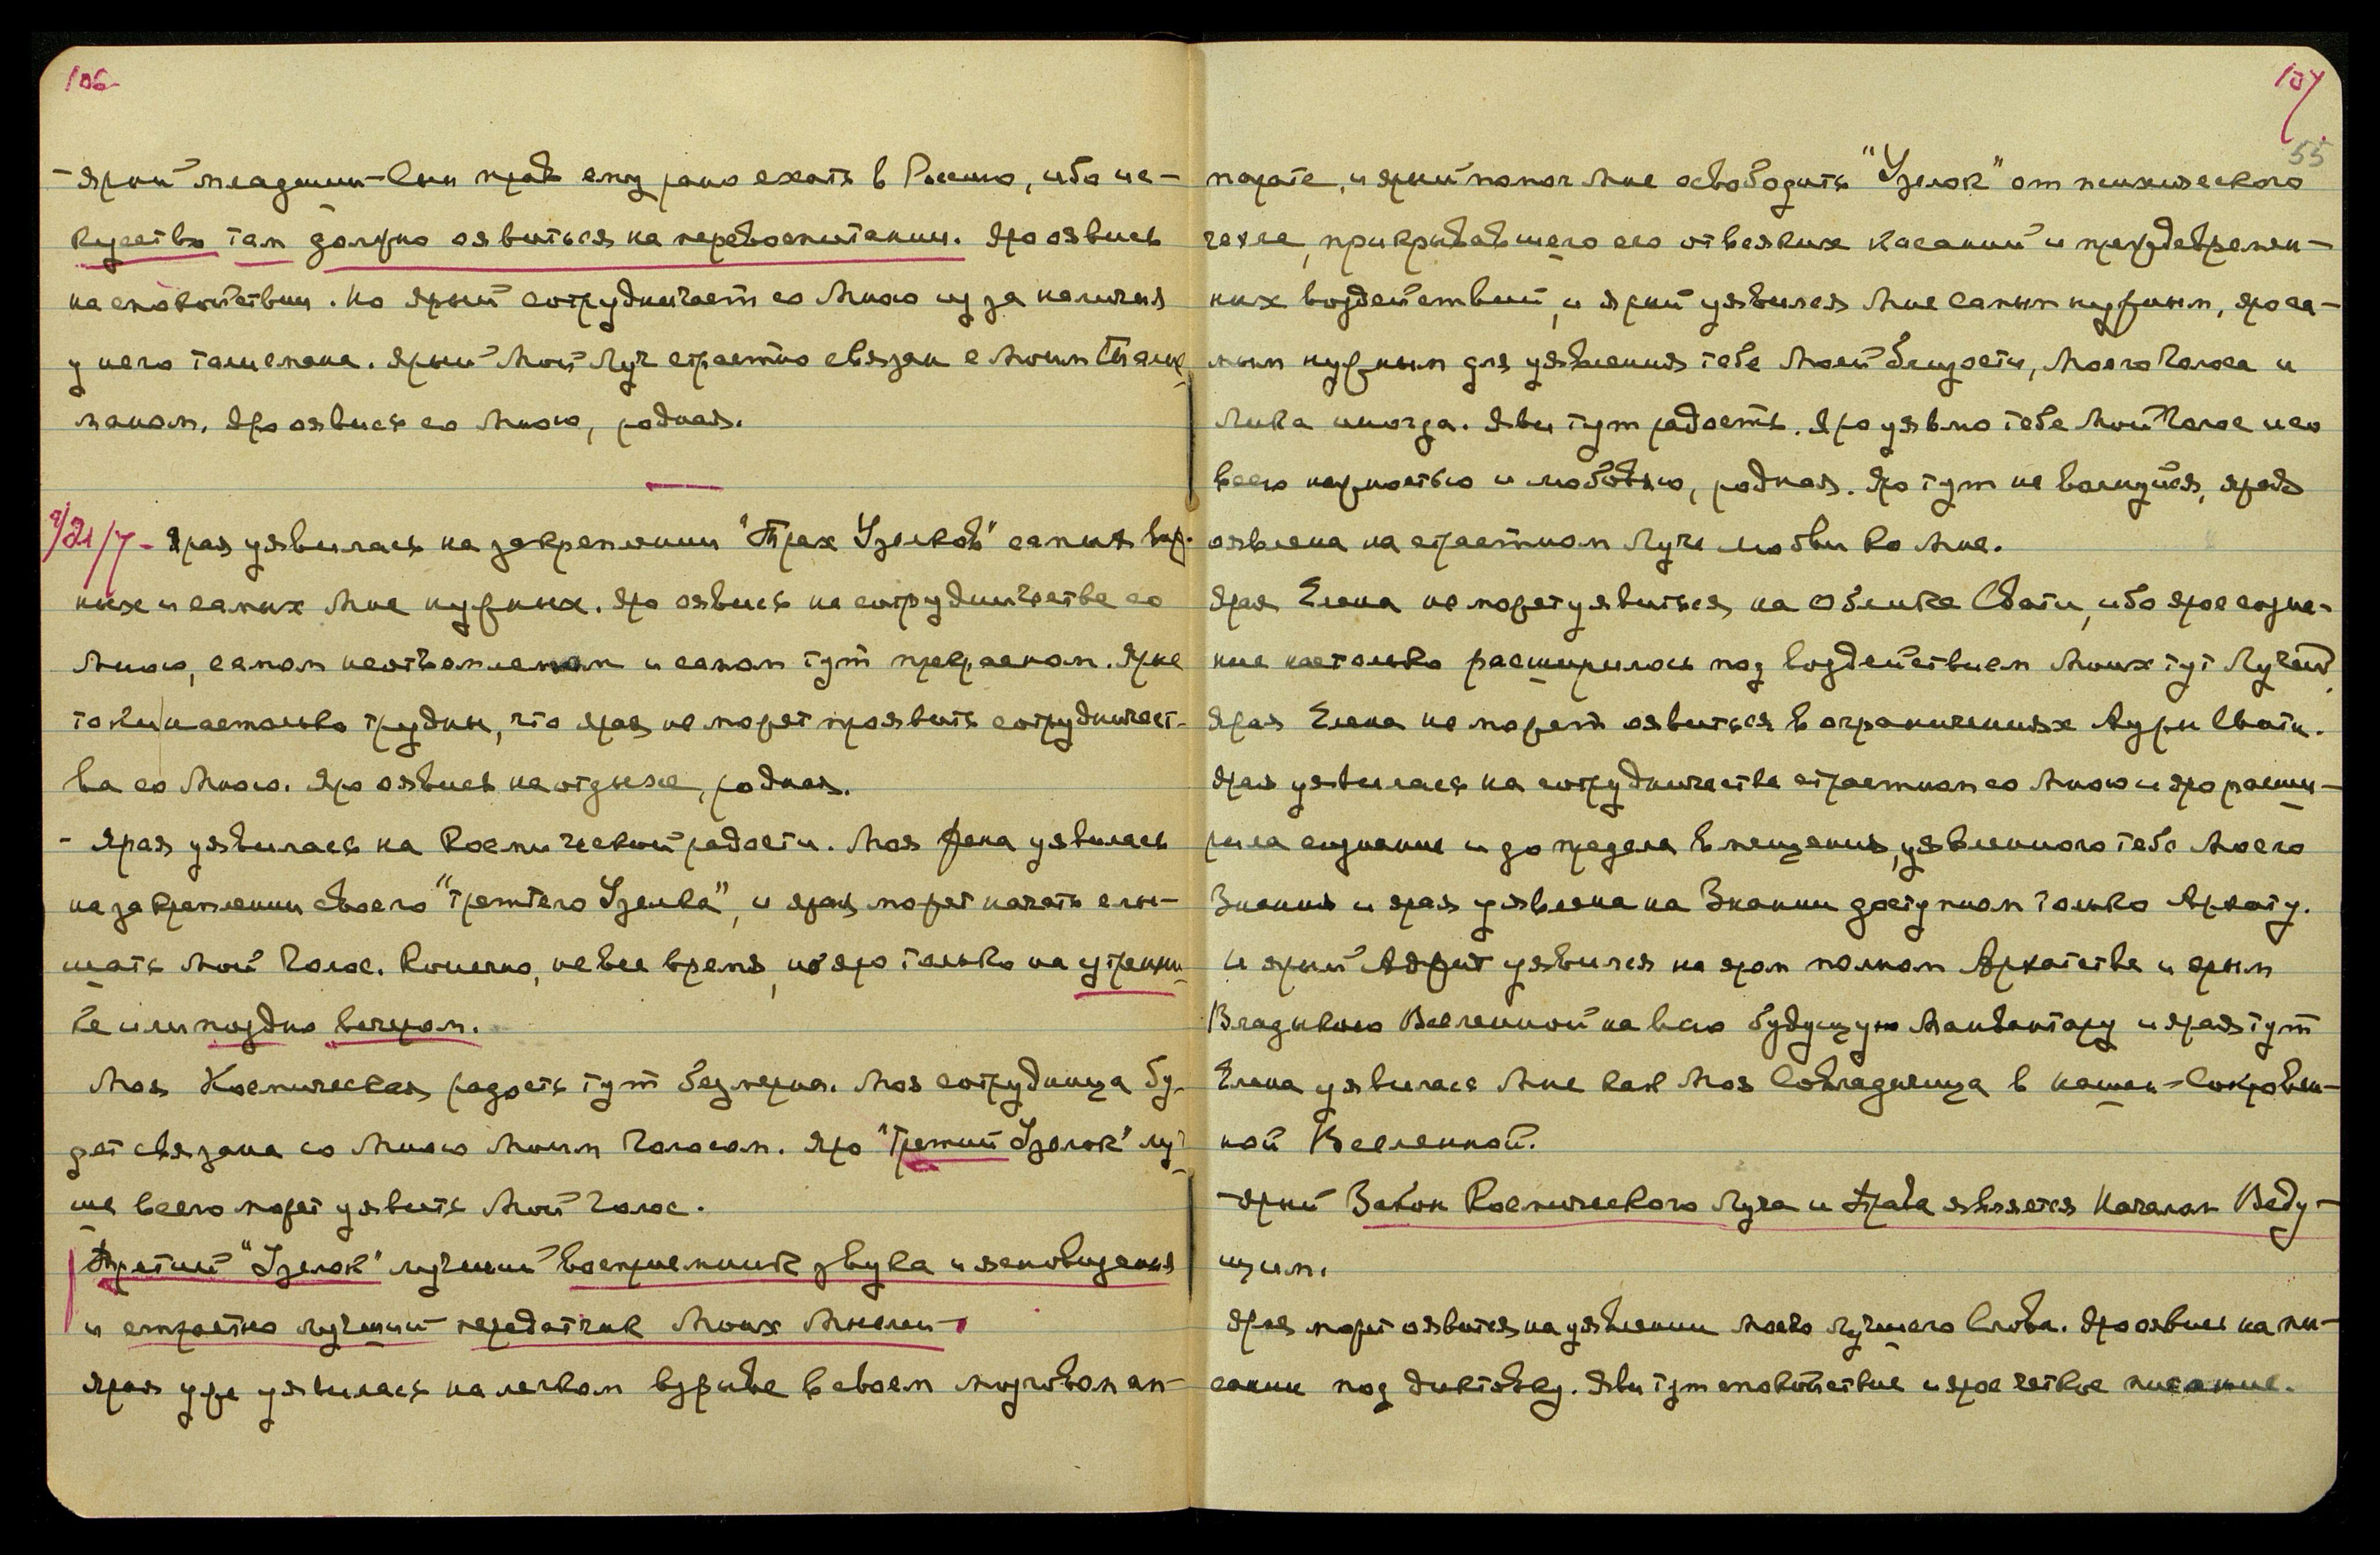 106
- Ярый младший-Сын прав ему рано ехать в Россию, ибо ис-
кусство там должно оявиться на перевоспитании. Яро оявись
на спокойствии. Но Ярый сотрудничает со Мною из за наличия
у него талисмана. Ярый Мой Луч страстно связан с Моим Талис-
маном. Яро оявись со Мною, родная.
Ярая уявилась на закреплении "Трех Узелков" самых важ-
ных и самых Мне нужных. Яро оявись на сотрудничестве со
Мною, самом неотъемлемом и самом тут прекрасном. Ярые
токи настолько трудны, что ярая не может проявить сотрудничест-
ва со Мною. Яро оявись на отдыхе, родная.
- Ярая уявилась на Космической радости. Моя Жена уявилась
на закреплении своего "третьего Узелка", и ярая может начать слы-
шать Мой Голос. Конечно, не все время, но яро только на утренни-
ке или поздно вечером.
Моя Космическая радость тут безмерна. Моя сотрудница бу-
дет связана со Мною Моим Голосом. Яро "Третий Узелок" луч-
ше всего может уявить Мой Голос.
Третий "Узелок" лучший восприемник звука и ясновидения
и страстно лучший передатчик Моих Мыслей-
Ярая уже уявилась на легком взрыве в своем мозговом ап-
107
55
парате, и ярый помог Мне освободить "Узелок" от психического
чехла, прикрывавшего его от всяких касаний и преждевремен-
ных воздействий, и ярый уявился Мне самым нужным, яро са-
мым нужным для уявления тебе Моей близости, Моего Голоса и
Лика иногда. Яви тут радость. Яро уявлю тебе Мой Голос и со
всею нежностью и любовью, родная. Яро тут не волнуйся, ярая
оявлена на страстном Луче любви ко Мне.
Ярая Елена не может уявиться на Облике Свати, ибо ярое созна-
ние настолько расширилось под воздействием Моих тут Лучей,
Ярая Елена не может оявиться в ограничениях Ауры Свати.
Ярая уявилась на сотрудничестве страстном со Мною и яро расши-
рила сознание и до предела вмещения, уявленного тебе Моего
Знания и ярая уявлена на Знании доступном только Архату.
И ярый Адепт уявился на яром полном Архатстве и ярым
Владыкою Вселенной на всю будущую Манвантару и ярая тут
Елена уявилась Мне как Моя Совладычица в нашей-Сокровен-
ной Вселенной.
-Ярый Закон Космического Луча и Права является Началом Веду-
щим.
Ярая может оявиться на уявлении Моего лучшего Слова. Яро оявись на пи-
сании под диктовку. Яви тут спокойствие и ярое четкое писание.